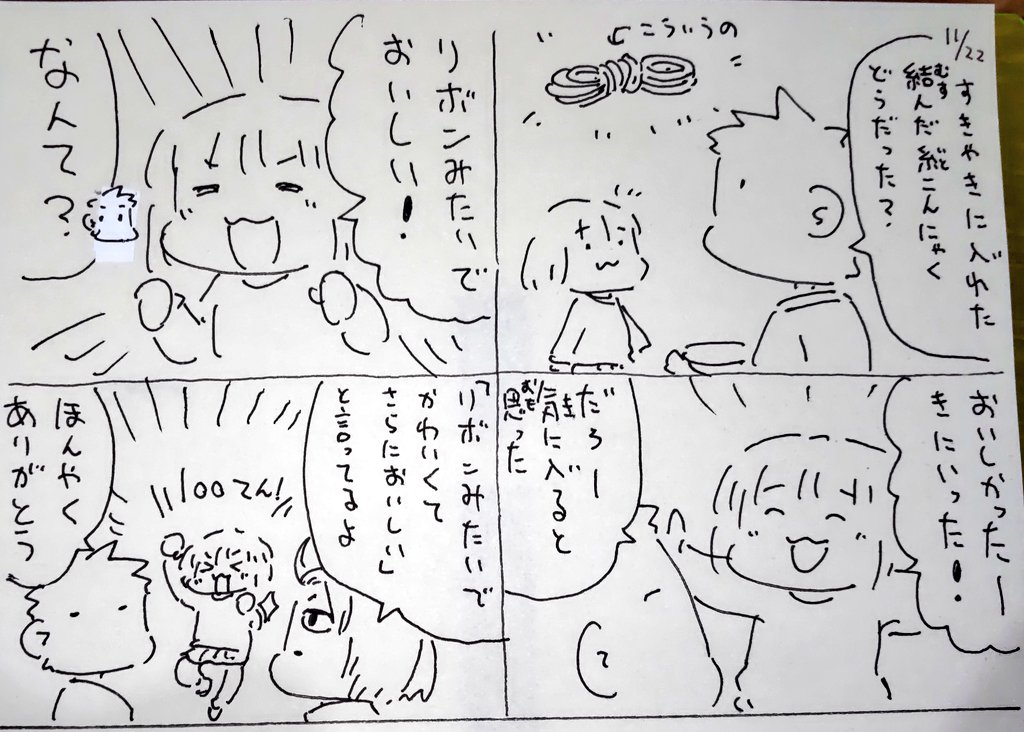 11/22
すきやきに入れた
結んだ糸こんにゃく
むす
いと
どうだった?
こういうの
おいしかったー
きにいった!
だろー
気に入ると
き
思った
おも
リボンみたいで
おいしい!
なんて?
「リボンみたいで
かわいくて
さらにおいしい」
と言ってるよ
100てん!
ほんやく
ありがとう